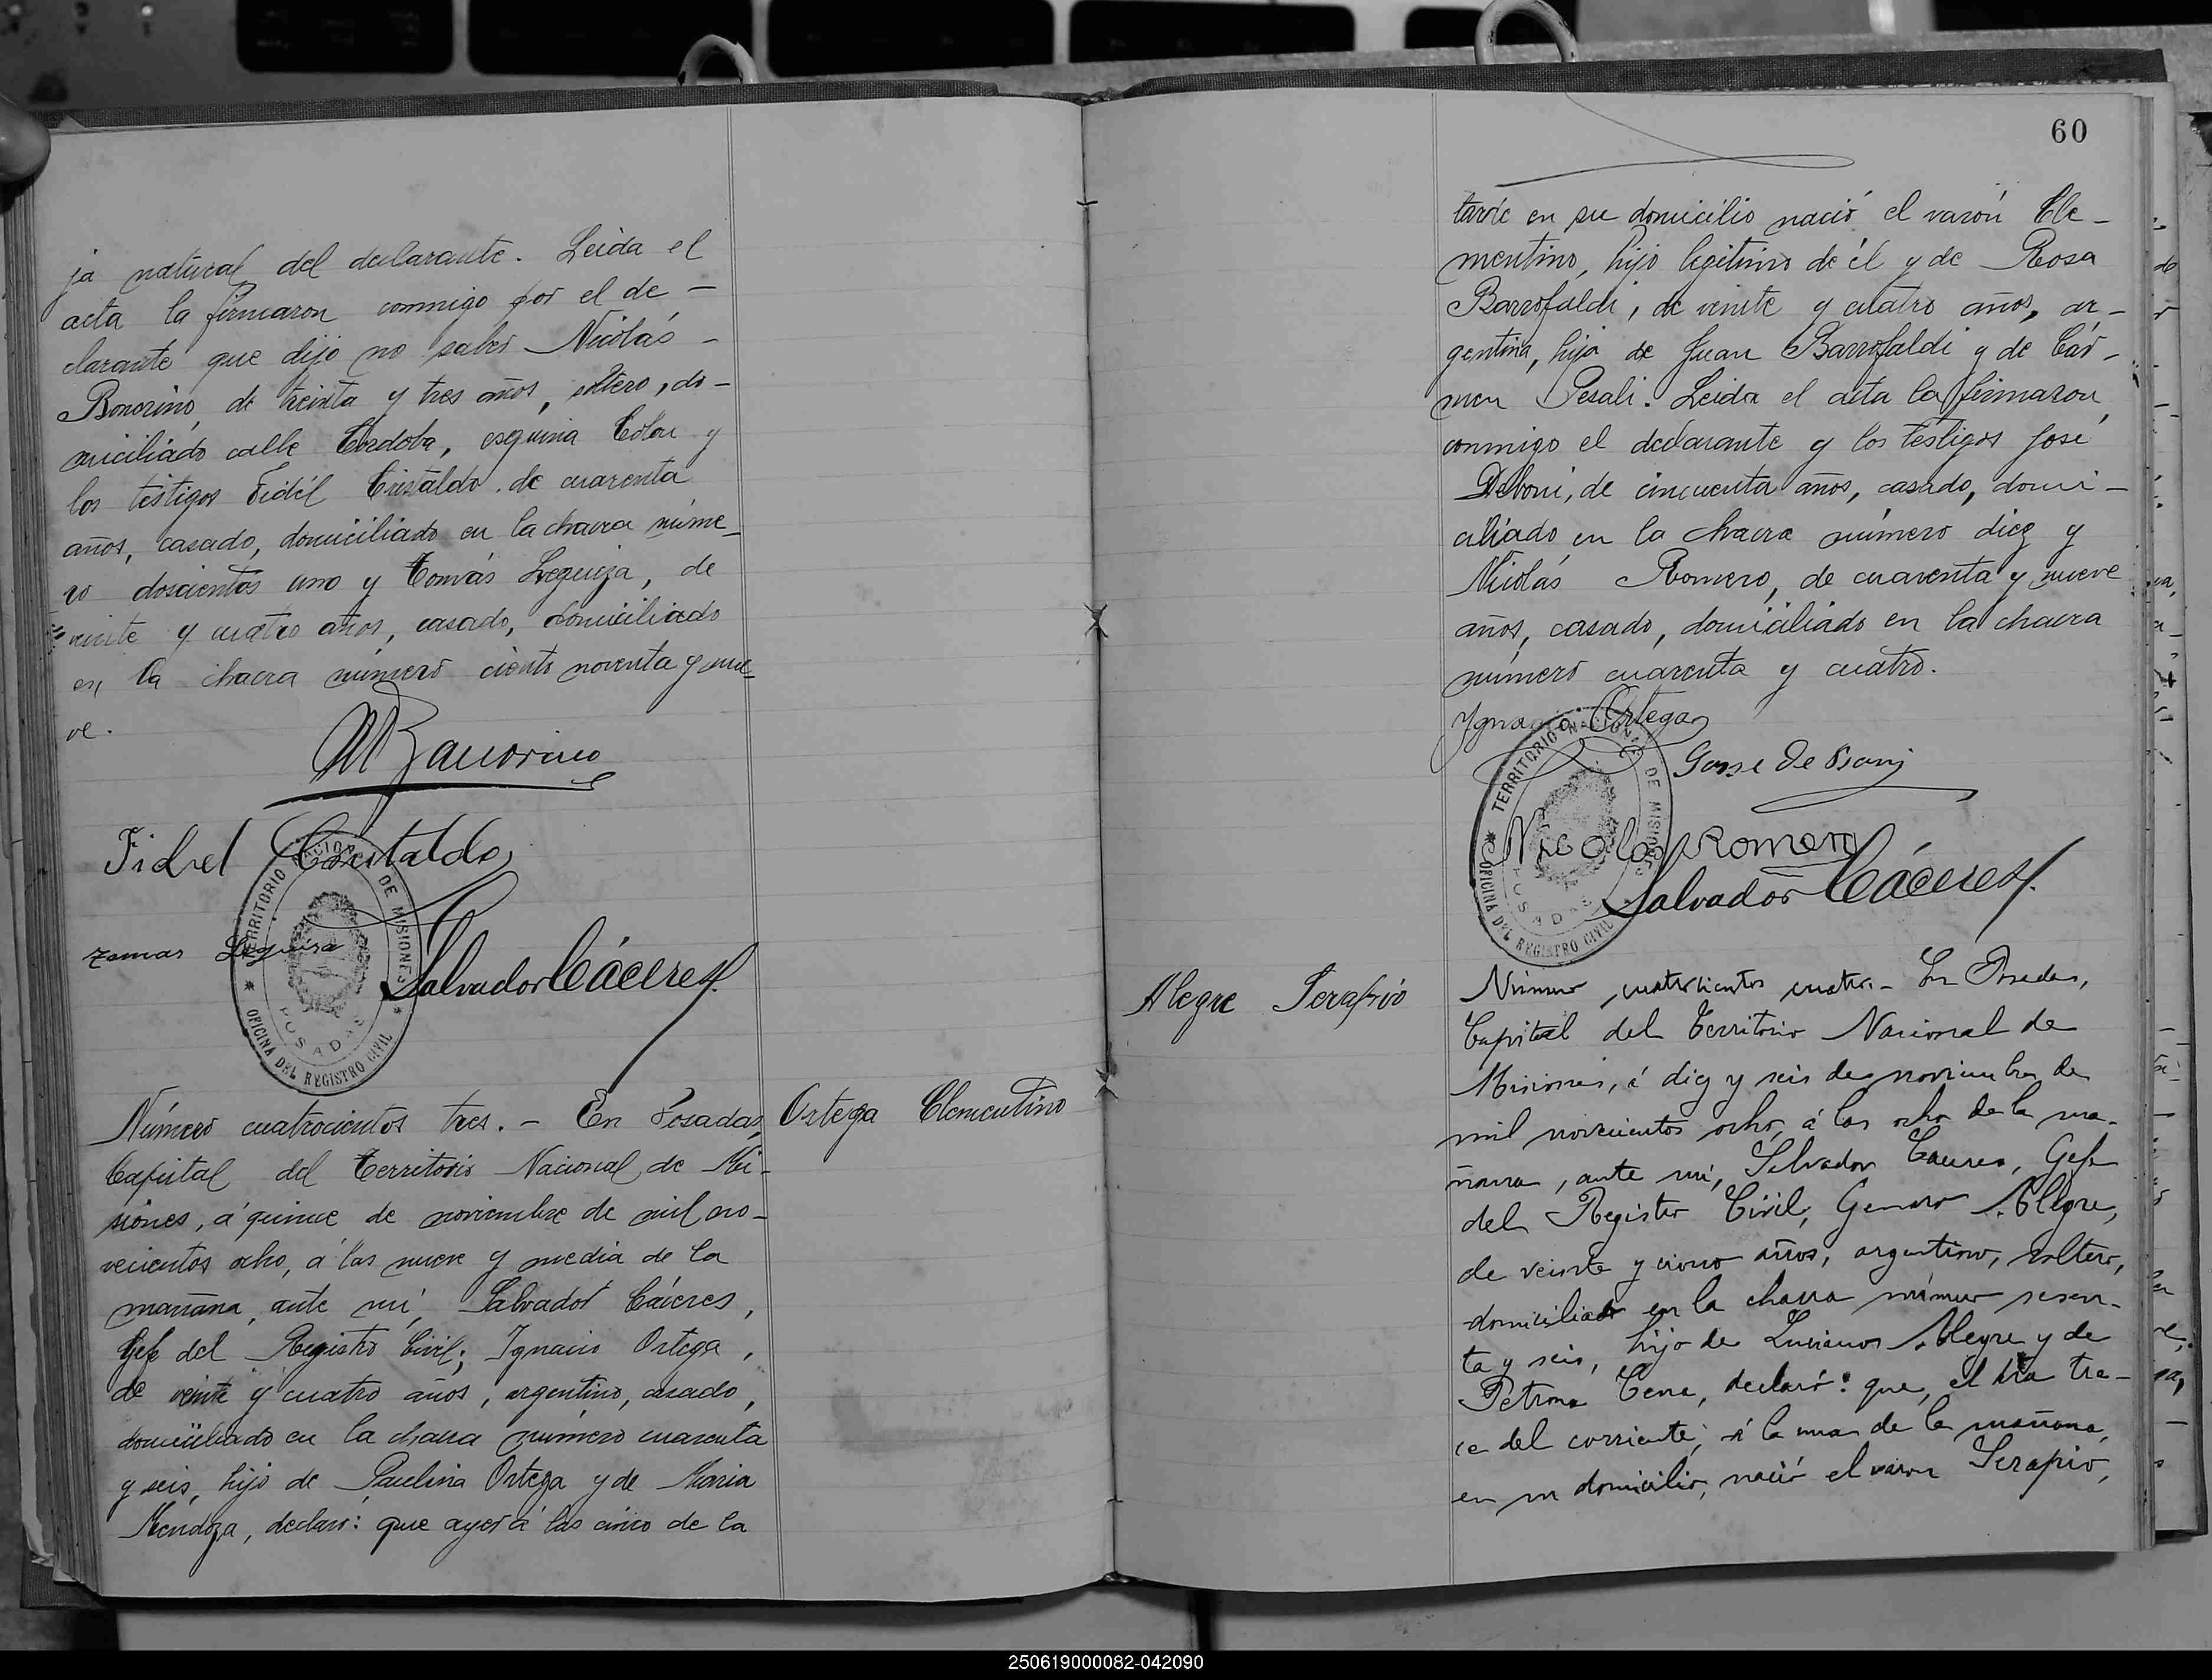 ja natural del declarante. Leida el
acta la firmaron conmigo por el de-
clarante que dijo no saber Nicolás
Bonorino, de treinta y tres años, soltero, do-
miciliado calle Cordoba, esquina Colon y
los testigos Fidél Cristaldo de cuarenta
años, casado, domiciliado en la chacra núme-
ro doscientos uno y Tomás Leguiza, de
veinte y cuatro años, casado, domiciliado
en la chacra número ciento noventa y nue-
ve.
Fidel Cristaldo
TERRITORIO NACIONAL DE MISIONES
POSADAS
OFICINA DEL REGISTRO CIVIL
Tomas Leguisa
Salvador Cáceres
Número cuatrocientos tres. - En Posadas,
Capital del Territorio Nacional de Mi-
siones, á quince de noviembre de mil no-
vecientos ocho, á las nueve y media de la
mañana, ante mi, Salvador Cáceres,
Gefe del Registro Civil; Ignacio Ortega,
de veinte y cuatro años, argentino, casado,
domiciliado en la chacra número cuarenta
y seis, hijo de Paulina Ortega y de Maria
Mendoza, declaró: que ayer á las cinco de la
Ortega Clementino
60
tarde en su domicilio nació el varón Cle-
mentino, hijo legítimo de él y de Rosa
Barrofaldi, de veinte y cuatro años, ar-
gentina, hija de Juan Barrofaldi y de Cár-
men Pesali. Leida el acta la firmaron
conmigo el declarante y los testigos José
Deboni, de cincuenta años, casado, domi-
ciliado en la chacra número diez y
Nicolás Romero, de cuarenta y nueve
años, casado, domiciliado en la chacra
número cuarenta y cuatro.
Ygnacio Ortega
TERRITORIO NACIONAL DE MISIONES
POSADAS
OFICINA DEL REGISTRO CIVIL
Nicolas Romero
Salvador Cáceres
Alegre Serapio
Número cuatrocientos cuatro - En Posadas,
Capital del Territorio Nacional de
Misiones, á diez y seis de noviembre de
mil novecientos ocho, á las ocho de la ma-
ñana, ante mi, Salvador Caceres, Gefe
del Registro Civil, Genaro Alegre,
de veinte y cinco años, argentino, soltero,
domiciliado en la chacra número sesen-
ta y seis, hijo de Luciano Alegre y de
Petrona Cena, declaró: que, el dia tre-
ce del corriente, á la una de la mañana,
en su domicilio, nació el varon Serapio,
250619000082-042090